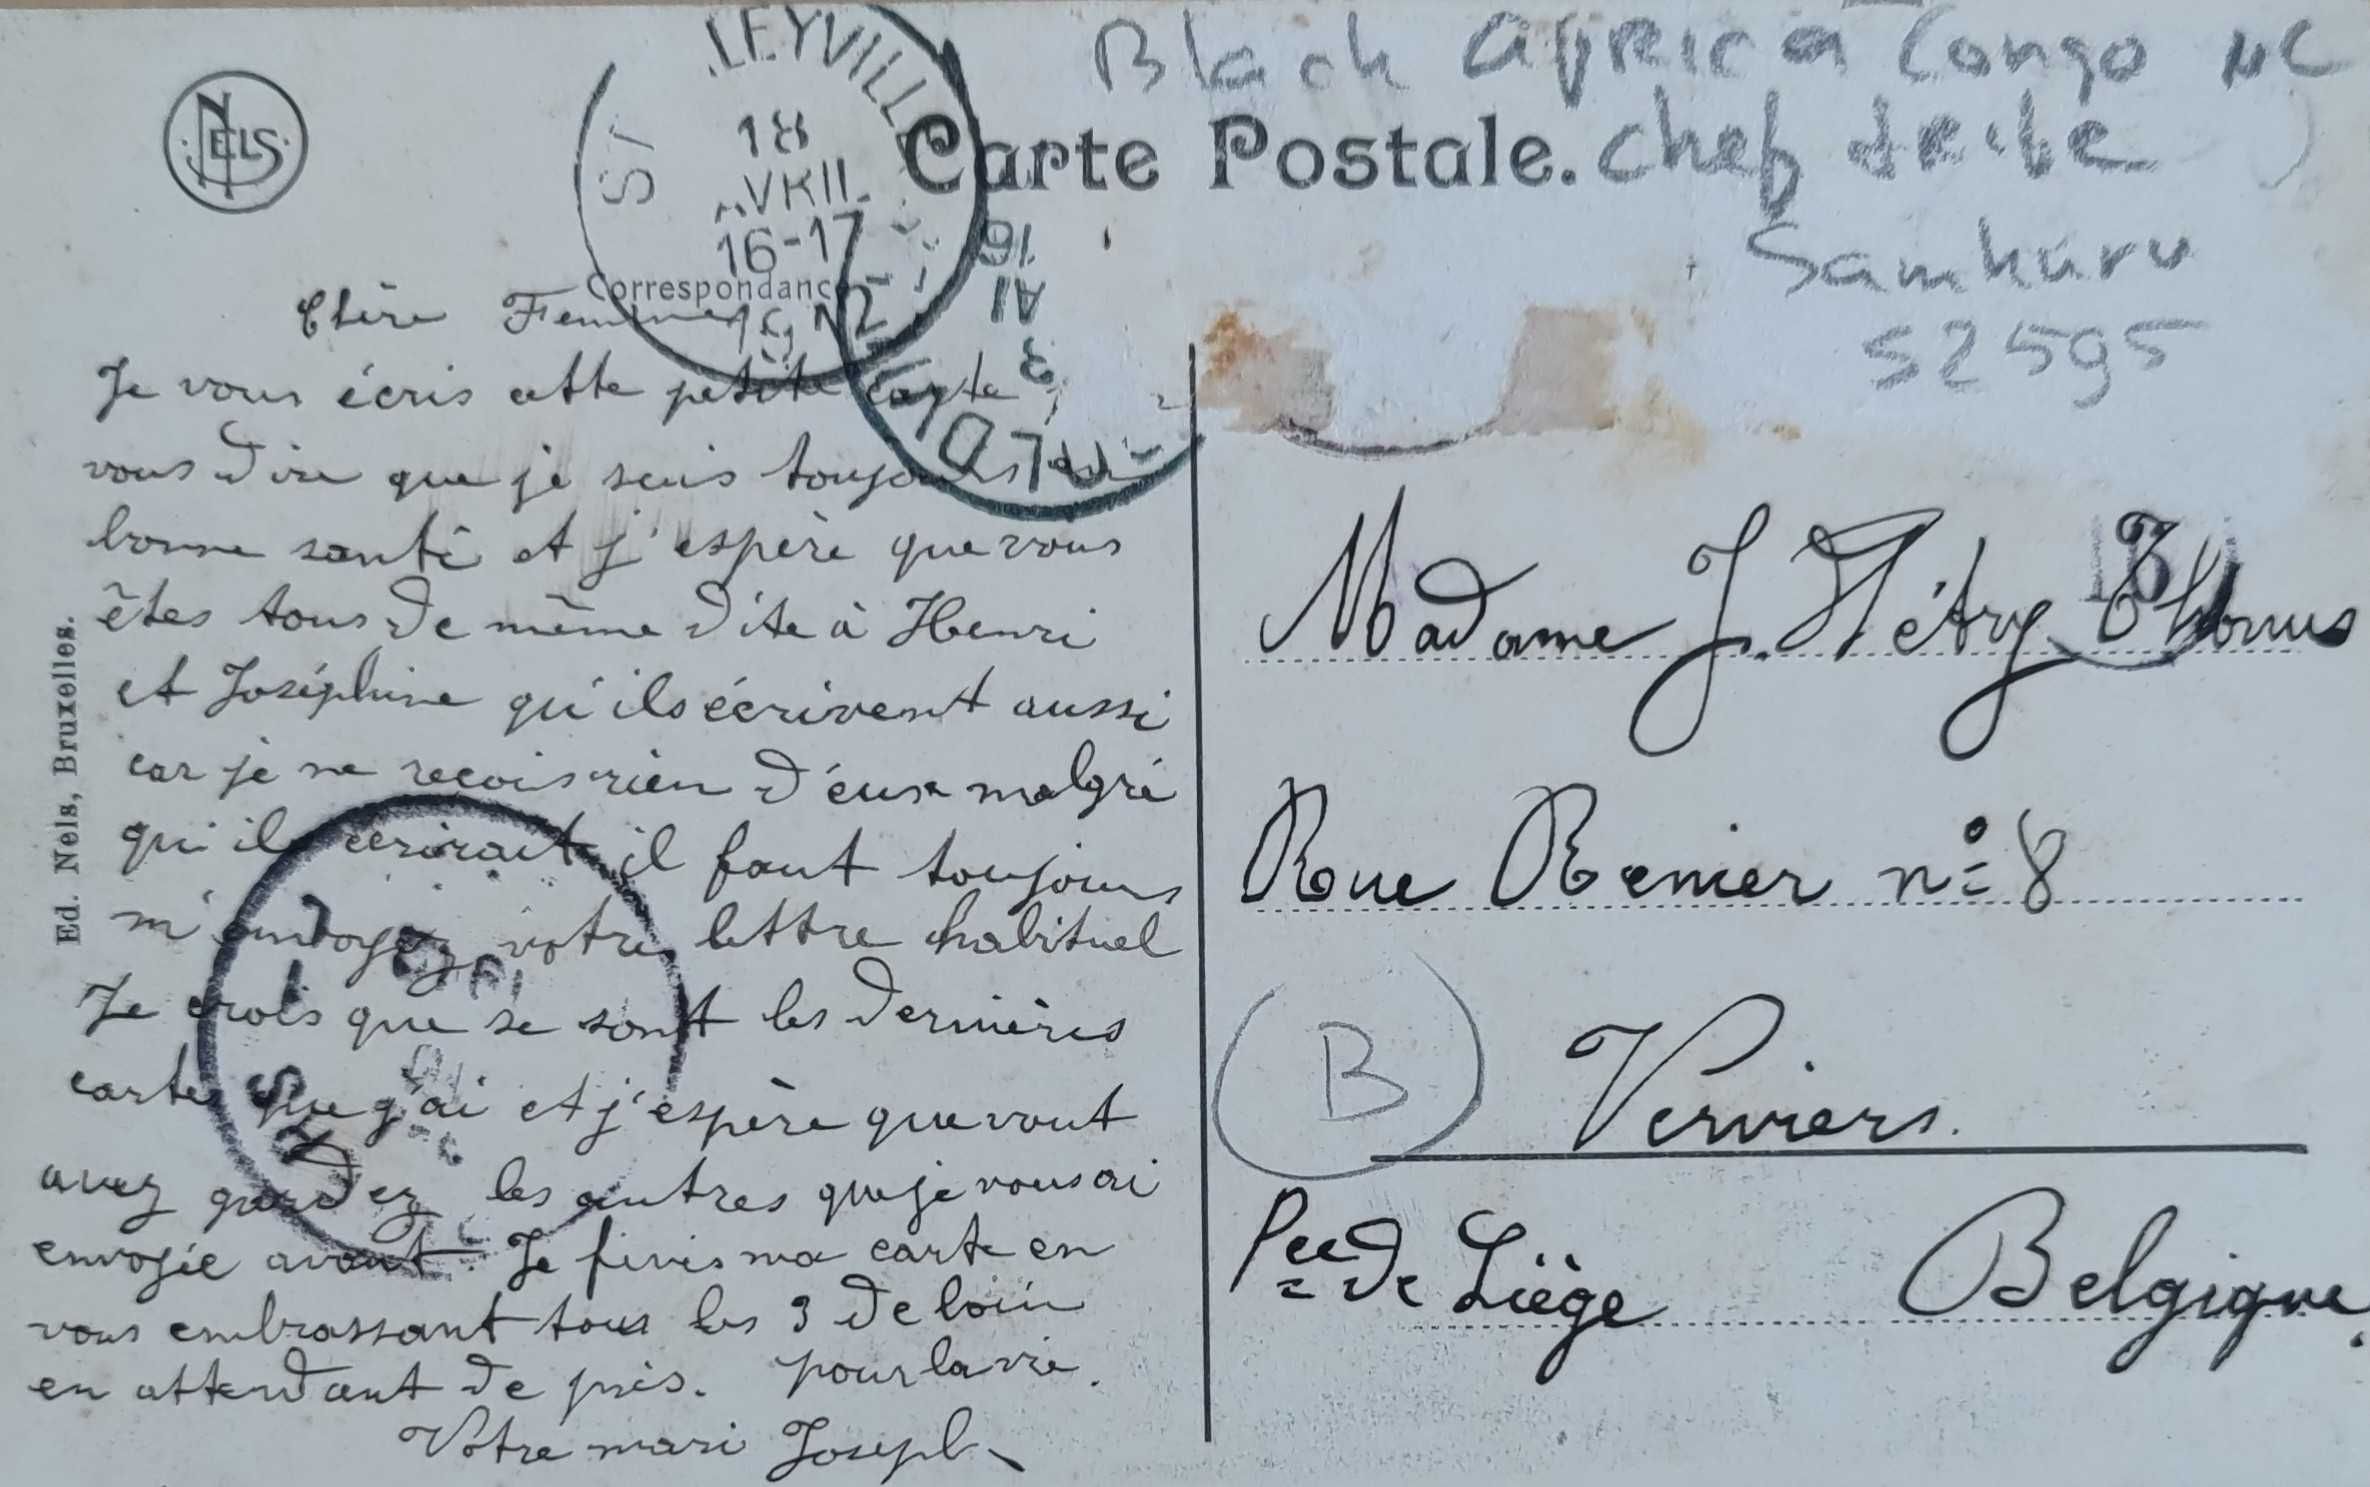 Black africa Congo
NELS
LEYVILLE
18
16-17
Carte Postale.
chef tribe
Samkuru
52595
Correspondance
Chère Femme
Je vous écris cette petite carte
vous dire que je suis toujours en
bonne santé et j'espère que vous
êtes tous de même dite à Henri
et Joséphine qu'ils écrivent aussi
car je ne recois rien d'eux malgré
qu'il écrirait il faut toujours
m'envoyez votre lettre habituel
Je crois que se sont les dernières
cartes que j'ai et j'espère que vout
avez gardez les autres que je vous ai
envoyée avant. Je finis ma carte en
vous embrassant tous les 3 de loin
en attendant de près. pour la vie.
Votre mari Joseph
Ed. Nels, Bruxelles.
Madame J. Thomus
Rue Renier n° 8
(B) Verviers.
Pce de Liège Belgique.